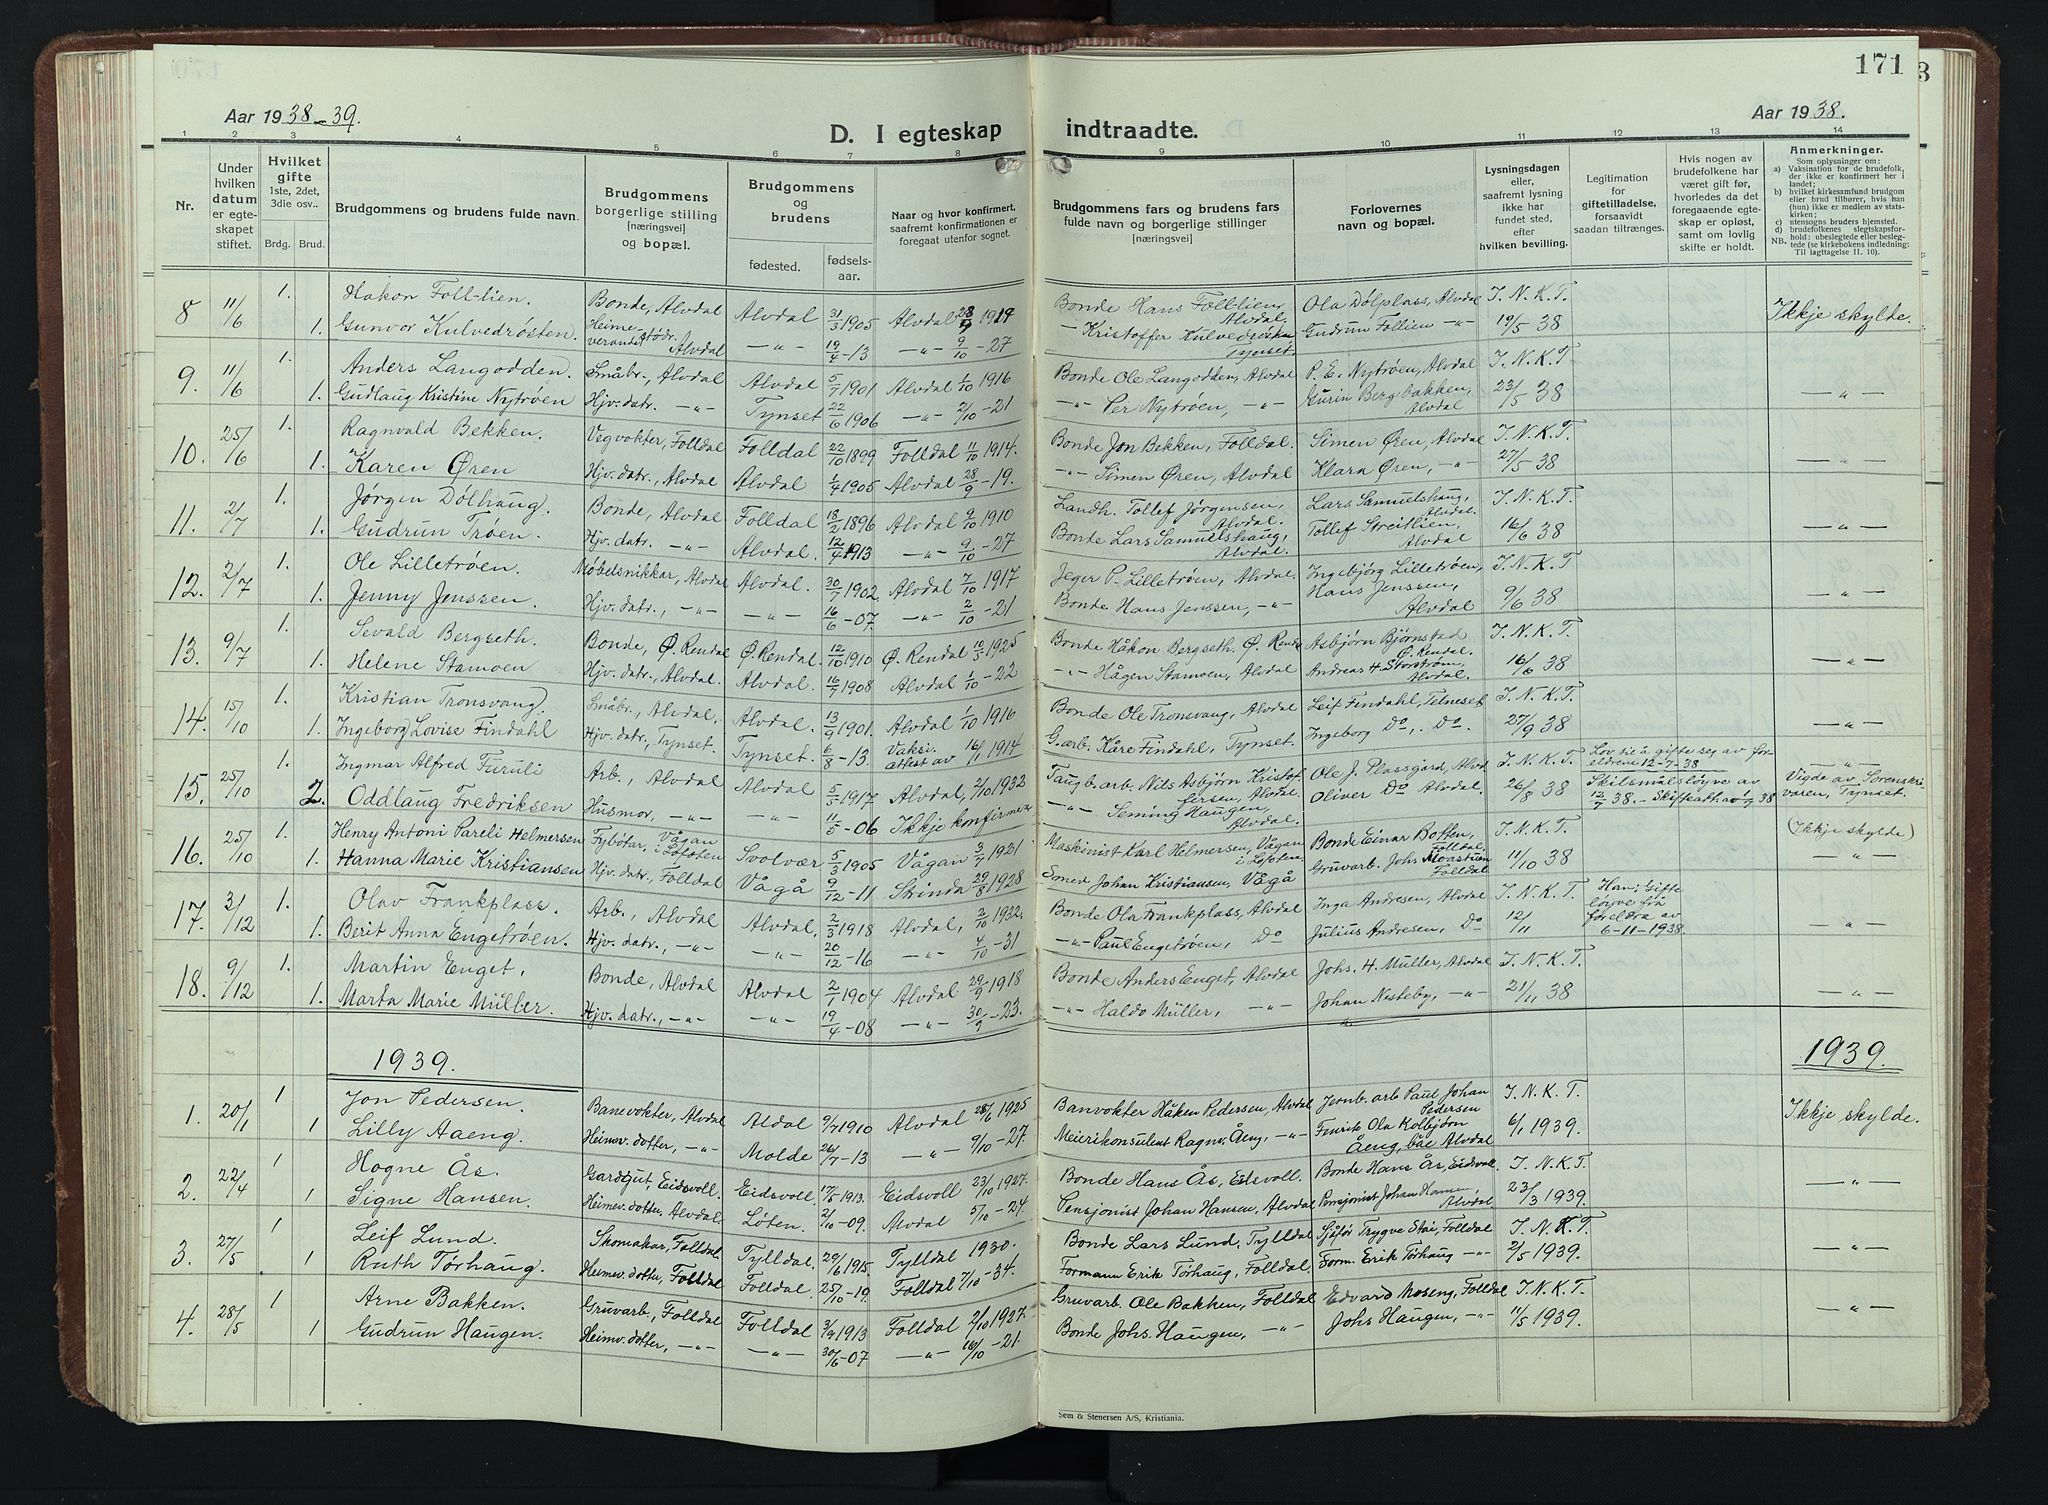 171
3
Aar 1938-39.
Aar 1938.
D. I egteskap indtraadte.
1 2 3 4 5 6 7 8 9 10 11 12 13 14
Nr.
Under hvilken datum er egteskapet stiftet.
Hvilket gifte 1ste, 2det, 3die osv..
Brdg. Brud.
Brudgommens og brudens fulde navn.
Brudgommens borgerlige stilling [næringsvei] og bopæl.
Brudgommens og brudens
fødested.
fødselsaar.
Naar og hvor konfirmert, saafremt konfirmationen er foregaat utenfor sognet.
Brudgommens fars og brudens fars fulde navn og borgerlige stillinger [næringsvei]
Forlovernes navn og bopæl.
Lysningsdagen eller, saafremt lysning ikke har fundet sted, efter hvilken bevilling.
Legitimation for giftetilladelse, forsaavidt saadan tiltrænges.
Hvis nogen av brudefolkene har været gift før, hvorledes da det foregaaende egteskap er opløst, samt om lovlig skifte er holdt.
Anmerkninger.
Som oplysninger om:
a) Vaksination for de brudefolk, der ikke er konfirmert her i landet;
b) hvilket kirkesamfund brudgom eller brud tilhører, hvis han (hun) ikke er medlem av statskirken;
c) utensogns bruders hjemsted.
d) brudefolkenes slegtskapsforhold: ubeslegtede eller beslegtede (se kirkebokens indledning:
NB. Til iagttagelse II. 10).
8 11/6 1. Håkon Follien. Bonde, Alvdal Alvdal 31/3 1905 Alvdal 28/9 1919 Bonde Hans Follien, Alvdal. Ola Dølplass, Alvdal T. N. K. T. Ikkje skylde.
1. Gunvor Kulvedrösten. Heimeverande Alvdal -"- 19/4-13 -"- 9/10-27 - Kristoffer Kulvedrösten Tynset. Gudrun Follien -"- 19/5 38
9. 11/6 1. Anders Langodden. Småbr., Alvdal Alvdal 5/7 1901 Alvdal 1/10 1916 Bonde Ole Langodden, Alvdal P. E. Nytrøen, Alvdal T. N. K. T
1. Gudlaug Kristine Nytrøen Hjv. datr. -"- Tynset 22/6 1906 -"- 2/10-21 -"- Per Nytrøen, -"- Gurin Bergebakken, Alvdal 23/5 38 -"-
10. 25/6 1. Ragnvald Bekken. Vegvokter, Folldal Folldal 22/10 1899 Folldal 11/10 1914. Bonde Jon Bekken, Folldal. Simen Øren, Alvdal T. N. K. T.
1. Karen Øren Hjv. datr., Alvdal Alvdal 1/4 1905 Alvdal 28/9-19. -"- Simen Øren, Alvdal Klara Øren, -"- 27/5 38 -"-
11. 2/7 1. Jørgen Dölhaug. Bonde, Alvdal Folldal 18/2 1896 Alvdal 9/10 1910 Landh. Tollef Jørgensen, Alvdal. Lars Samuelshaug, Alvdal. T. N. K. T.
1. Gudrun Trøen. Hjv. datr. -"- Alvdal. 12/4 1913 -"- 9/10-27 Bonde Lars Samuelshaug, Alvdal. Tollef Streitlien, Alvdal 16/6 38 -"-
12. 2/7 1. Ole Lilletrøen. Møbelsnikkar, Alvdal Alvdal. 30/7 1902. Alvdal 7/10 1917 Jeger P. Lilletrøen, Alvdal. Ingebjörg Lilletrøen, T. N. K. T
1. Jenny Jenssen. Hjv. datr., -"- -"- 16/6-07. -"- 2/10-21 Bonde Hans Jenssen, -"- Hans Jenssen, Alvdal 9/6 38 -"-
13. 9/7 1. Sevald Bergseth. Bonde, Ø. Rendal Ø. Rendal 12/10 1910 Ø. Rendal 10/5 1925 Bonde Håkon Bergseth. Ø. Rendal Asbjørn Björnstad Ø. Rendal. T. N. K. T.
1. Helene Stamoen Hjv. datr., Alvdal. Alvdal. 16/7 1908 Alvdal 1/10-22 -"- Hågen Stamoen, Alvdal Andreas H. Storstrøm, Alvdal. 16/6 38 -"-
14. 15/10 1. Kristian Tronsvang. Småbr., Alvdal, Alvdal 13/9 1901. Alvdal 1/10 1916 Bonde Ole Tronsvang, Alvdal Leif Findahl, Telneset T. N. K. T.
1. Ingeborg Lovise Findahl Hjv. datr., Tynset. Tynset. 6/8-13. Vaksi. attest av 16/1 1914 G.arb. Kåre Findahl, Tynset. Ingeborg Do, Do 27/9 38 -"-
15. 25/10 1. Ingmar Alfred Furuli Arb., Alvdal Alvdal 5/5 1917 Alvdal, 2/10 1932 Taugb. arb. Nils Asbjørn Kristoffersen, Alvdal. Ole J. Plassgård, Alvd T. N. K. T. Lov til å gifte seg av foreldrene 12-7-38 -"-
2. Oddlaug Fredriksen Husmor, -"- -"- 11/5-06 Ikkje konfirmert -"- Seming Haugen, Alvdal. Oliver Do Alvdal. 26/8 38 Skilsmålsløyve av 12/7 38. - Skifteatt. av 1/9 38 Vigde av Sorenskrivaren, Tynset.
16. 25/10 1. Henry Antoni Pareli Helmersen Fybötar, Vågan i Lofoten Svolvær 5/3 1905 Vågan 3/7 1921 Maskinist Karl Helmersen, Vågan i Lofoten Bonde Einar Botten, Folldal, T. N. K. T. (Ikkje skylde)
1. Hanna Marie Kristiansen Hjv. datr., Folldal Vågå 9/12-11 Strinda 29/8 1928 Smed Johan Kristiansen, Vågå Gruvarb. Johs Moastuen Folldal 11/10 38 -"-
17. 3/12 1. Olav Frankplass. Arb., Alvdal Alvdal, 2/3 1918 Alvdal, 2/10 1932. Bonde Ola Frankplass, Alvdal Inga Andresen, Alvdal T. N. K. T Han: Gifteløyve frå foreldra av 6-11-1938.
1. Berit Anna Engetrøen. Hjv. datr., -"- -"- 20/12-16 -"- 4/10-31 -"- Paul Engetrøen, Do Julius Andresen, Do 12/11 -"-
18. 9/12 1. Martin Enget, Bonde, Alvdal Alvdal 2/1 1904 Alvdal 29/9 1918 Bonde Anders Enget, Alvdal Johs. H. Müller, Alvdal T. N. K. T.
1. Marta Marie Müller. Hjv. datr., -"- -"- 19/4-08 -"- 30/9-23. -"- Haldo Müller, -"- Johan Nesteby, -"- 21/11 38 -"-
1939. 1939.
1. 20/1 1 Jon Pedersen. Banevokter, Alvdal Aldal 9/7 1910 Alvdal 28/6 1925 Banvokter Håken Pedersen, Alvdal Jernb. arb Paul Johan Pedersen T. N. K. T Ikkje skylde.
1 Lilly Aaeng. Heimev. dotter, -"- Molde 26/7-13 -"- 9/10-27. Meierikonsulent Ragnv. Åeng, -"- Fenrik Ola Kolbjørn Åeng, båe Alvdal 6/1 1939.
2. 22/4 1 Hogne Ås. Gardgut, Eidsvoll. Eidsvoll. 17/5 1913. Eidsvoll 23/10 1927. Bonde Hans Ås, Eidsvoll. Bonde Hans Ås, Eidsvoll T. N. K. T.
1 Signe Hansen. Heimev. dotter, Alvdal. Løten. 2/10-09. Alvdal 5/10-24. Pensjonist Johan Hansen, Alvdal Pensjonist Johan Hansen, Alvdal 23/3 1939. -"-
3. 27/5 1 Leif Lund. Skomakar, Folldal. Tylldal. 20/6 1915. Tylldal 1930. Bonde Lars Lund, Tylldal Sjåfør Trygve Stai, Folldal T. N. K. T.
1 Ruth Tørhaug. Heimev. dotter, Folldal Folldal. 25/10-19. Folldal 7/10-34. Formann Erik Tørhaug, Folldal. Form. Erik Tørhaug -"- 2/5 1939. -"-
4. 28/5 1 Arne Bakken. Gruvarb., Folldal Folldal 3/9 1913 Folldal 2/10 1927. Gruvarb. Ole Bakken, Folldal Edvard Moseng, Folldal T. N. K. T.
1 Gudrun Haugen. Heimev. dotter, -"- -"- 30/6-07 -"- 16/10-21. Bonde Johs. Haugen, -"- Johs Haugen, -"- 11/5 1939. -"-
Sem & Stenersen A/S, Kristiania.